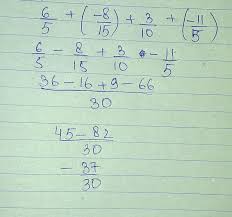 6/5 + (-8/15) + 3/10 + (-11/5)
6/5 - 8/15 + 3/10 - 11/5
36-16+9-66/30
45-82/30
-37/30